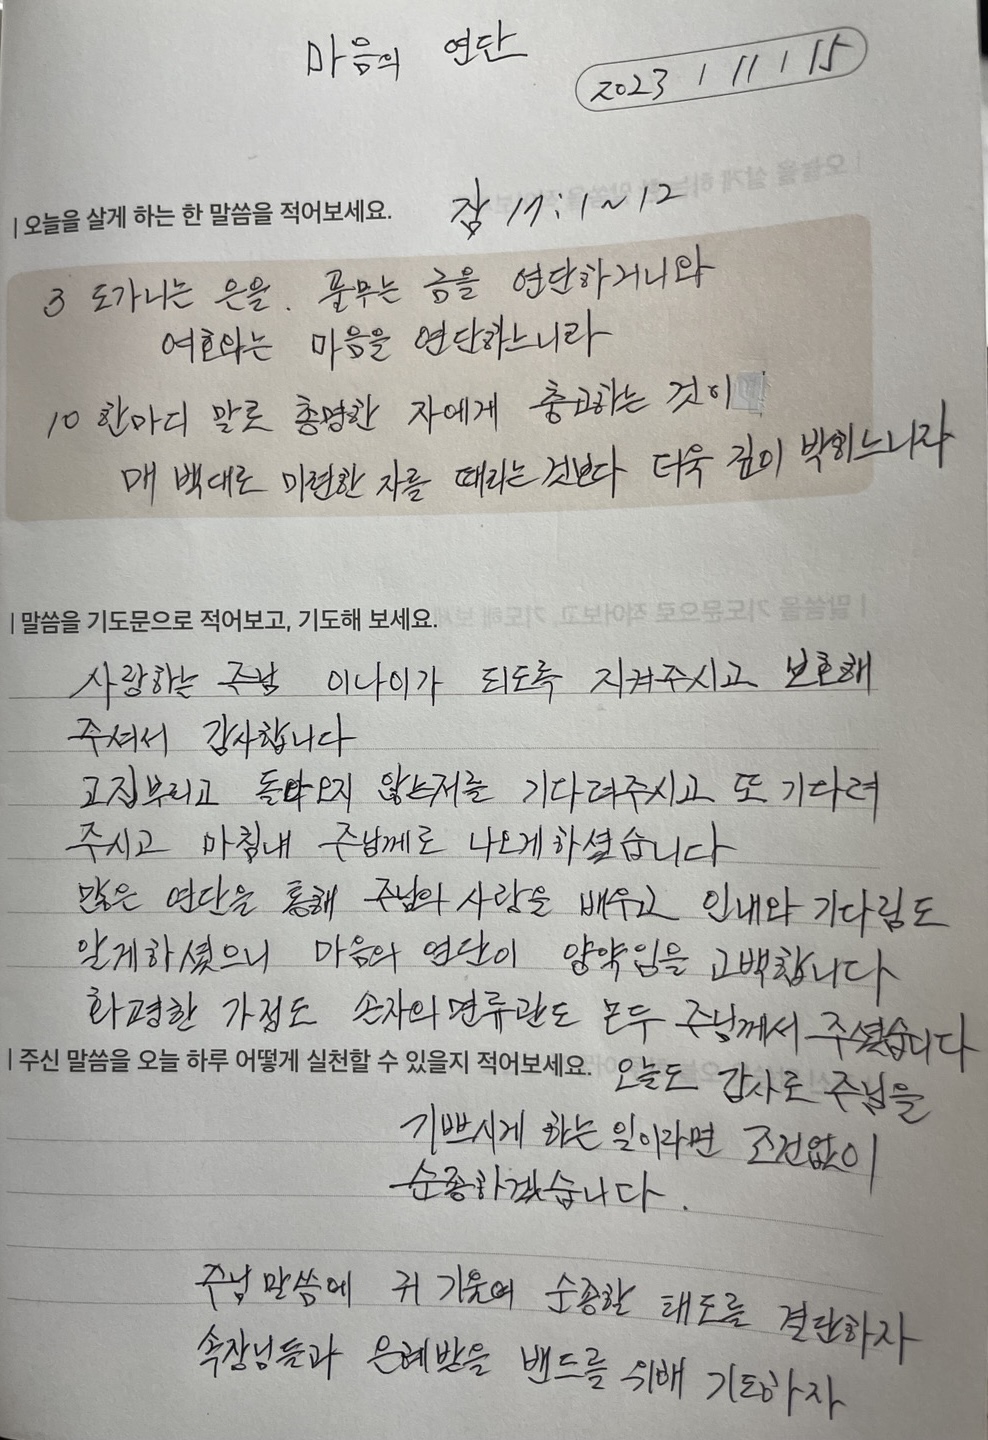 마음의 연단
2023 / 11 / 15
| 오늘을 살게 하는 한 말씀을 적어보세요. 잠 17:1~12
3 도가니는 은을. 풀무는 금을 연단하거니와
여호와는 마음을 연단하느니라
10 한마디 말로 총명한 자에게 충고하는 것이
매 백대로 미련한 자를 때리는 것보다 더욱 깊이 박히느니라
| 말씀을 기도문으로 적어보고, 기도해 보세요.
사랑하는 주님 이나이가 되도록 지켜주시고 보호해
주셔서 감사합니다
고집부리고 돌아오지 않는저를 기다려주시고 또 기다려
주시고 마침내 주님께로 나오게하셨습니다
많은 연단을 통해 주님의 사랑을 배우고 인내와 기다림도
알게하셨으니 마음의 연단이 양약임을 고백합니다
화평한 가정도 손자의 면류관도 모두 주님께서 주셨습니다
| 주신 말씀을 오늘 하루 어떻게 실천할 수 있을지 적어보세요. 오늘도 감사로 주님을
기쁘시게 하는 일이라면 조건없이
순종하겠습니다.
주님 말씀에 귀 기울여 순종할 태도를 결단하자
속장님들과 은혜받을 밴드를 위해 기도하자